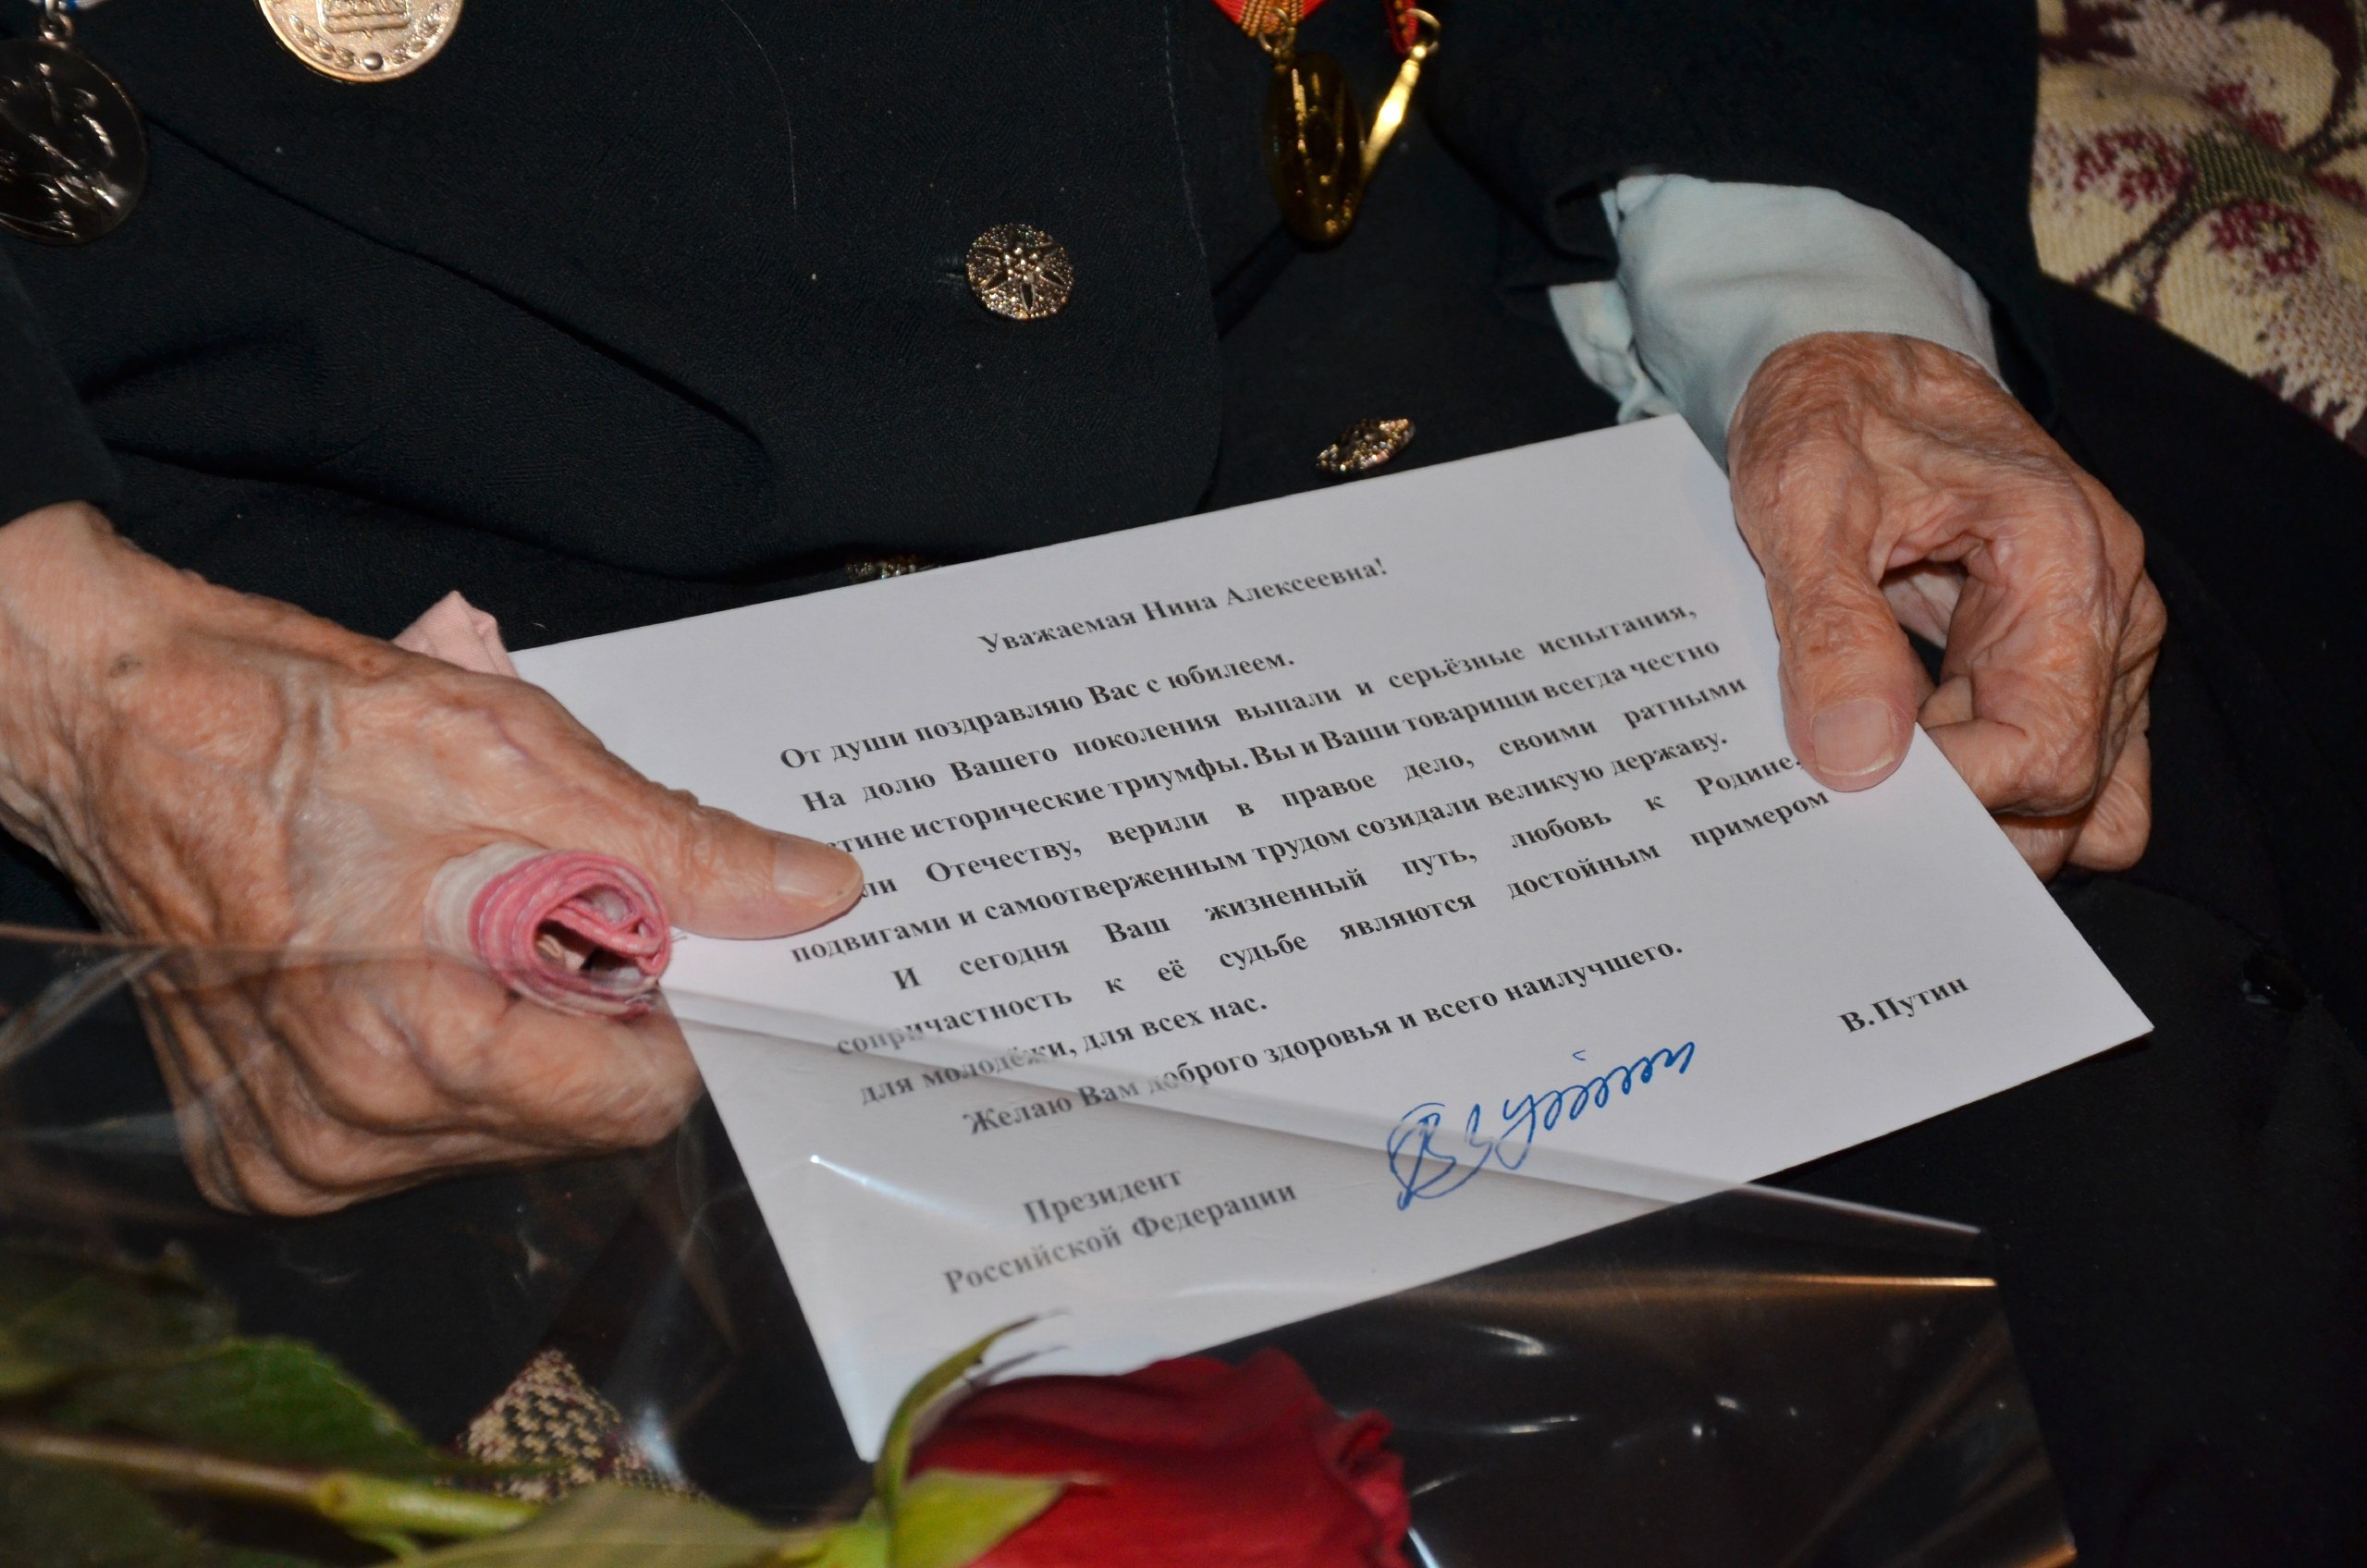 Уважаемая Нина Алексеевна!
От души поздравляю Вас с юбилеем.
На долю Вашего поколения выпали и серьёзные испытания,
исторические триумфы. Вы и Ваши товарищи всегда честно
Отечеству, верили в правое дело, своими ратными
подвигами и самоотверженным трудом созидали великую державу.
И сегодня Ваш жизненный путь, любовь к Родине,
сопричастность к её судьбе являются достойным примером
для молодёжи, для всех нас.
Желаю Вам доброго здоровья и всего наилучшего.
Президент
Российской Федерации
В. Путин